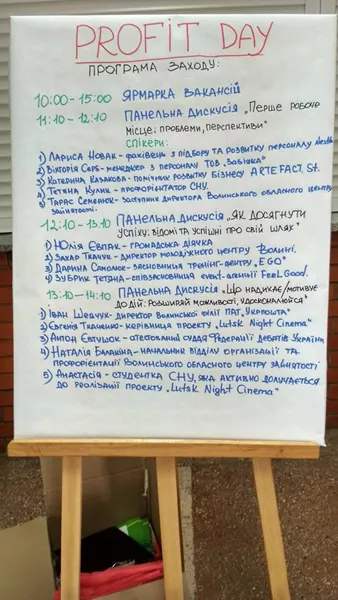 PROFIT DAY
ПРОГРАМА ЗАХОДУ:
10:00-15:00 ЯРМАРКА ВАКАНСІЙ
11:10-12:10 ПАНЕЛЬНА ДИСКУСІЯ „Перше робоче
місце: проблеми, перспективи"
СПІКЕРИ:
1) Лариса Новак - фахівець з підбору та розвитку персоналу Nestle
2) Вікторія Серб - менеджер з персоналу ТОВ „Завівка"
3) Катерина Казакова - помічник розвитку бізнесу ARTEFACT, St.
4) Тетяна Кулик - профорієнтатор СНУ.
5) Тарас Семенюк - заступник директора Волинського обласного центру
зайнятості
12:10-13:10 ПАНЕЛЬНА ДИСКУСІЯ „ЯК ДОСЯГНУТИ
УСПІХУ: ВІДОМІ ТА УСПІШНІ ПРО СВІЙ ШЛЯХ"
1) Юлія Євпак - громадська діячка
2) Захар Ткачук - директор молодіжного центру Волині.
3) Дарина Самолюс - засновниця тренінг-центру „EGO"
4) Зубрик Тетяна - співзасновниця event-агенції Feel Good.
13:10-14:10 ПАНЕЛЬНА ДИСКУСІЯ „ЩО НАДИХАЄ/МОТИВУЄ
ДО ДІЙ: РОЗШИРЯЙ МОЖЛИВОСТІ, УДОСКОНАЛЮЙСЯ"
1) Іван Шевчук - директор Волинської філії ПАТ „Укрпошта"
2) Євгенія Ткаченко - керівниця проекту „Lutsk Night Cinema"
3) Антон Євтушок - атестований суддя Федерації дебатів України
4) Наталія Балашіна - начальник відділу організації та
профорієнтації Волинського обласного центру зайнятості
5) Анастасія - студентка СНУ, яка активно долучається
до реалізації проекту „Lutsk Night Cinema"